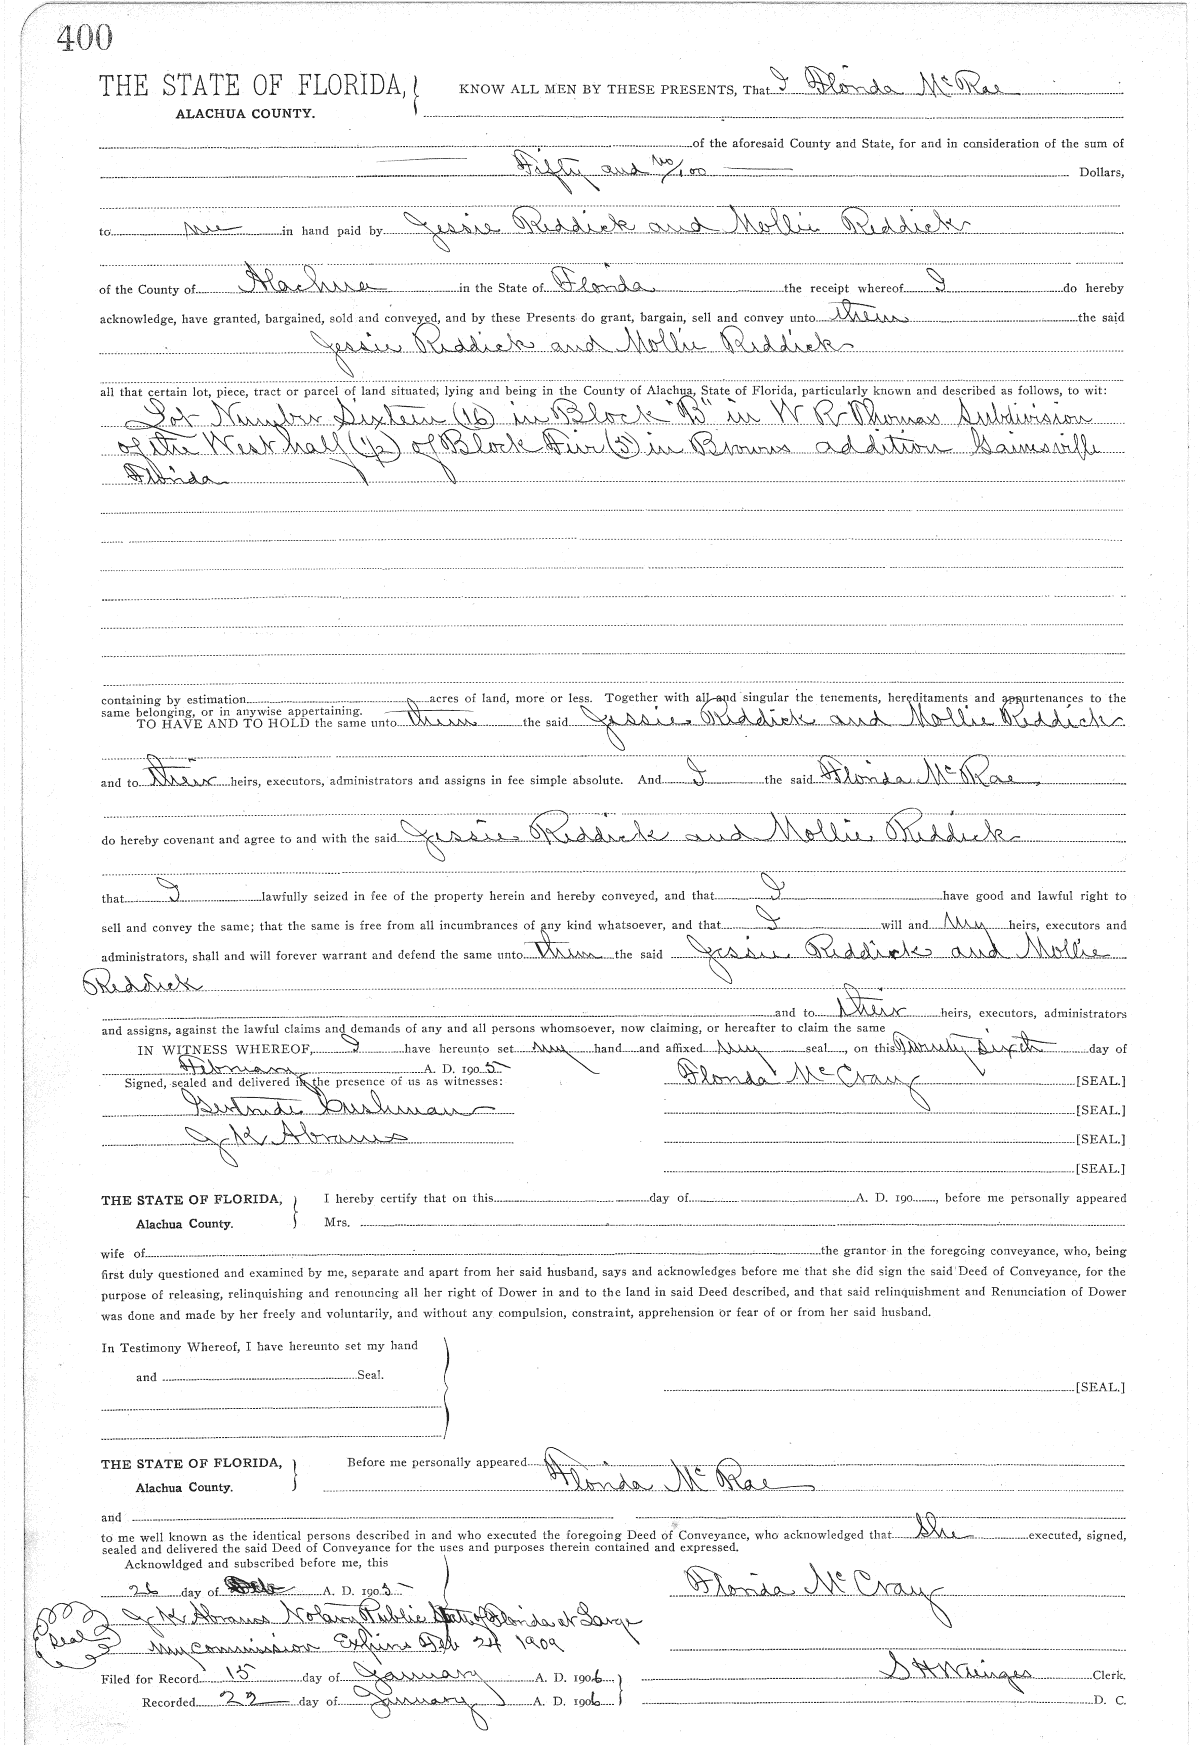 400
THE STATE OF FLORIDA, KNOW ALL MEN BY THESE PRESENTS, That I Florida McRae
ALACHUA COUNTY.
of the aforesaid County and State, for and in consideration of the sum of
Fifty and no/100 Dollars,
to me in hand paid by Jessie Reddick and Mollie Reddick
of the County of Alachua in the State of Florida the receipt whereof I do hereby
acknowledge, have granted, bargained, sold and conveyed, and by these Presents do grant, bargain, sell and convey unto them the said
Jessie Reddick and Mollie Reddick
all that certain lot, piece, tract or parcel of land situated, lying and being in the County of Alachua, State of Florida, particularly known and described as follows, to wit:
Lot Number Sixteen (16) in Block "B" in W R Thomas Subdivision
of the West half (1/2) of Block Five (5) in Browns addition Gainesville
Florida
containing by estimation acres of land, more or less. Together with all and singular the tenements, hereditaments and appurtenances to the
same belonging, or in anywise appertaining.
TO HAVE AND TO HOLD the same unto them the said Jessie Reddick and Mollie Reddick
and to their heirs, executors, administrators and assigns in fee simple absolute. And I the said Florida McRae
do hereby covenant and agree to and with the said Jessie Reddick and Mollie Reddick
that I lawfully seized in fee of the property herein and hereby conveyed, and that I have good and lawful right to
sell and convey the same; that the same is free from all incumbrances of any kind whatsoever, and that I will and my heirs, executors and
administrators, shall and will forever warrant and defend the same unto them the said Jessie Reddick and Mollie
Reddick
and to their heirs, executors, administrators
and assigns, against the lawful claims and demands of any and all persons whomsoever, now claiming, or hereafter to claim the same
IN WITNESS WHEREOF, I have hereunto set my hand and affixed my seal, on this Twenty Sixth day of
February A. D. 1905
Signed, sealed and delivered in the presence of us as witnesses: Florida McCray [SEAL.]
Gertrude Cushman [SEAL.]
J K Abrams [SEAL.]
[SEAL.]
THE STATE OF FLORIDA, I hereby certify that on this day of A. D. 190 , before me personally appeared
Alachua County. Mrs.
wife of the grantor in the foregoing conveyance, who, being
first duly questioned and examined by me, separate and apart from her said husband, says and acknowledges before me that she did sign the said Deed of Conveyance, for the
purpose of releasing, relinquishing and renouncing all her right of Dower in and to the land in said Deed described, and that said relinquishment and Renunciation of Dower
was done and made by her freely and voluntarily, and without any compulsion, constraint, apprehension or fear of or from her said husband.
In Testimony Whereof, I have hereunto set my hand
and Seal.
[SEAL.]
THE STATE OF FLORIDA, Before me personally appeared
Alachua County. Florida McRae
and
to me well known as the identical persons described in and who executed the foregoing Deed of Conveyance, who acknowledged that She executed, signed,
sealed and delivered the said Deed of Conveyance for the uses and purposes therein contained and expressed.
Acknowldged and subscribed before me, this
26 day of Feb A. D. 1905 Florida McCray
J K Abrams Notary Public State of Florida at Large
Seal My Commission Expires Feb 24 1909
Filed for Record 15 day of January A. D. 1906 S H Wienges Clerk.
Recorded 22 day of January A. D. 1906 D. C.